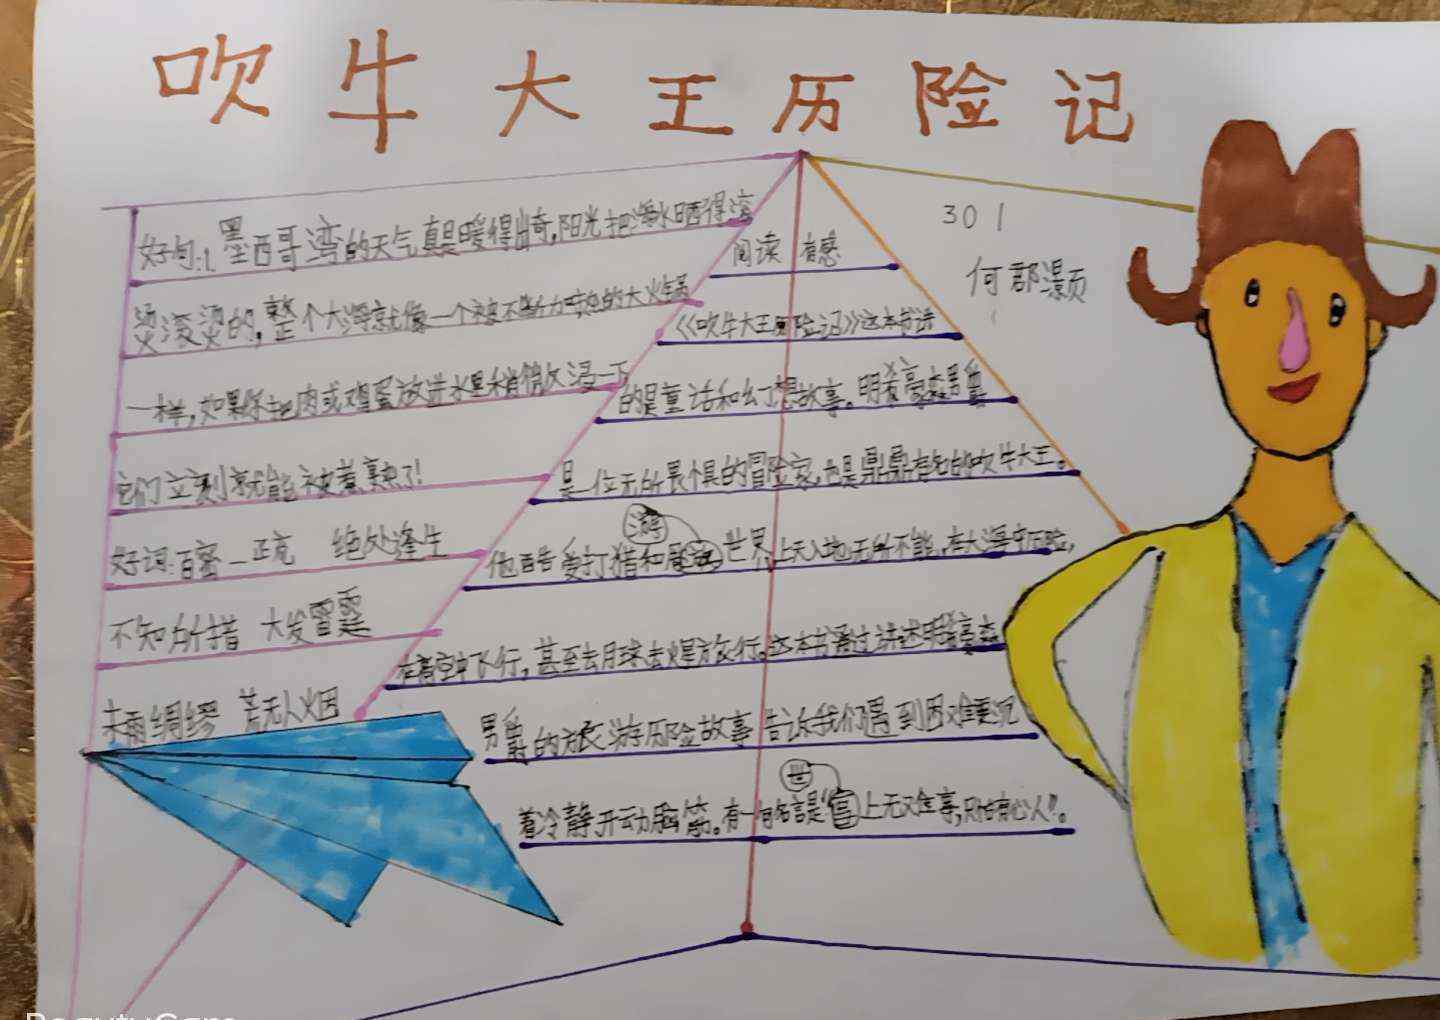 吹牛大王历险记
301
何郡灏
好句:1、墨西哥湾的天气真是暖得出奇,阳光把海水晒得滚
烫滚烫的,整个大海就像一个被不断加热的大火锅
一样,如果你把肉或鸡蛋放进水里稍微浸一下
它们立刻就能被煮熟了!
好词:百密一疏 绝处逢生
不知所措 大发雷霆
未雨绸缪 荒无人烟
阅读 有感
《吹牛大王历险记》这本书讲
的是童话和幻想故事。明希豪森男爵
是一位无所畏惧的冒险家,也是鼎鼎有名的吹牛大王。
他酷爱打猎和周游世界,上天入地无所不能,在大海中历险,
在高空中飞行,甚至去月球去火星旅行。这本书通过讲述明希豪森
男爵的旅游历险故事告诉我们遇到困难要沉
着冷静开动脑筋。有一句名言是“世上无难事,只怕有心人”。